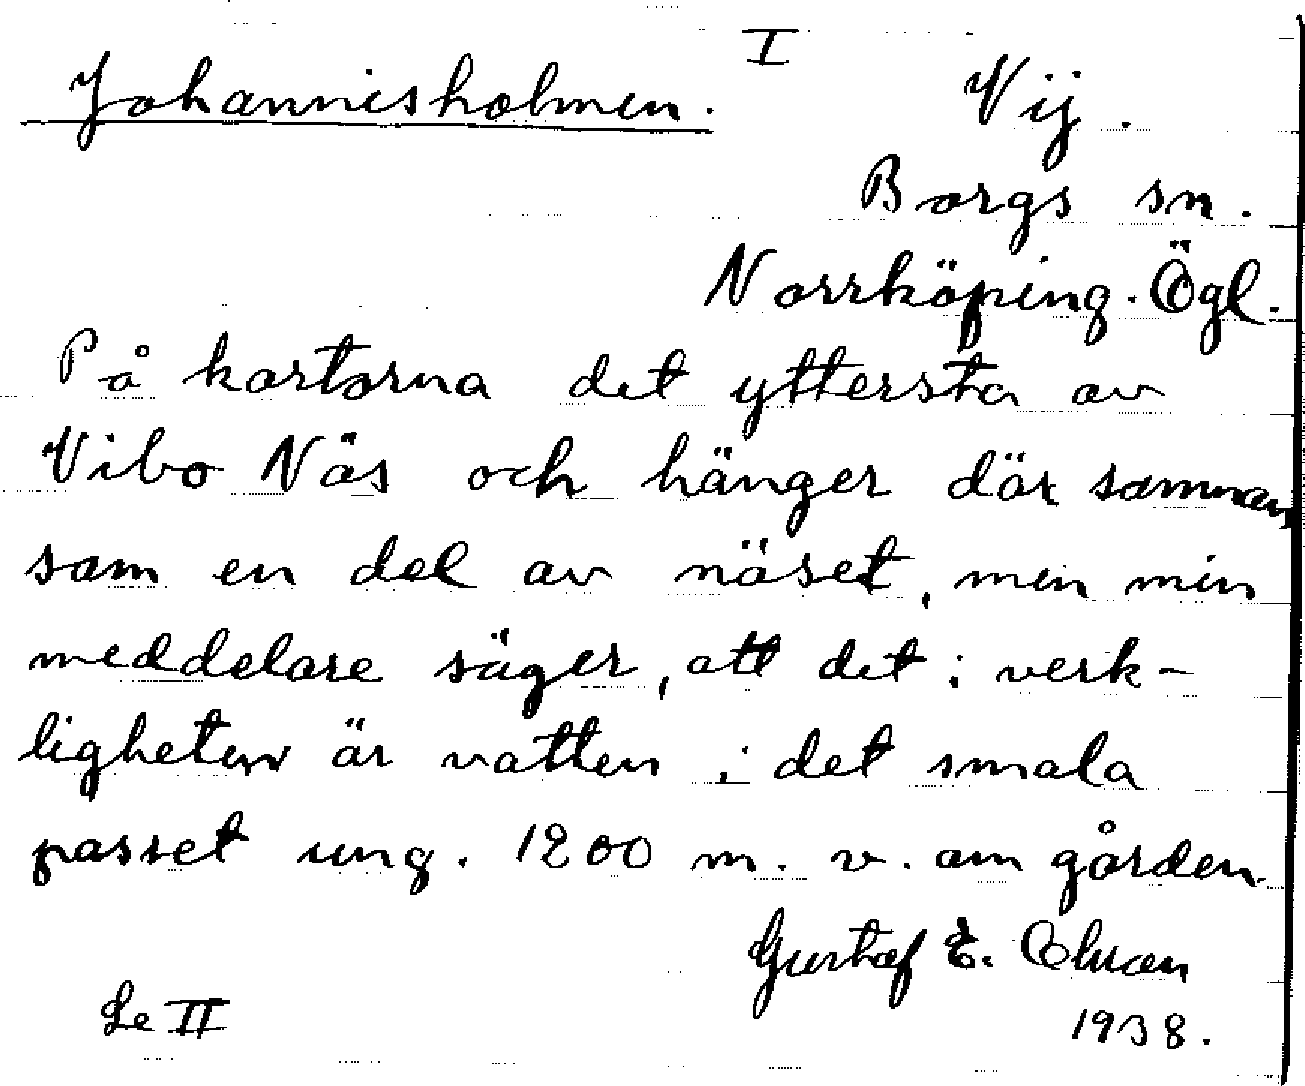 I
Johannisholmen. Vij.
Borgs sn.
Norrköping. Ögl.
På kartorna det yttersta av
Vibo Näs och hänger där samman
som en del av näset, men min
meddelare säger, att det i verk-
ligheten är vatten i det smala
passet ung. 1200 m. v. om gården
Gustaf E.
Se II 1938.